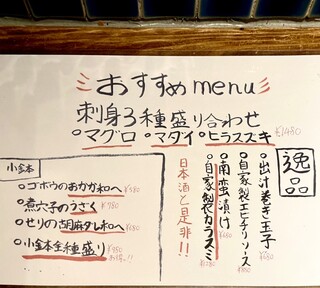 おすすめ menu
刺身3種盛り合わせ
○マグロ ○マダイ ○ヒラスズキ ¥1480
逸品
○出汁巻き玉子
○自家製エビチリソース
○南蛮漬け
○自家製カラスミ
日本酒と是非!!
小鉢
○ゴボウのおかか和へ
○煮穴子のうざく ¥780
○せりの胡麻タレ和へ
○小鉢全種盛り